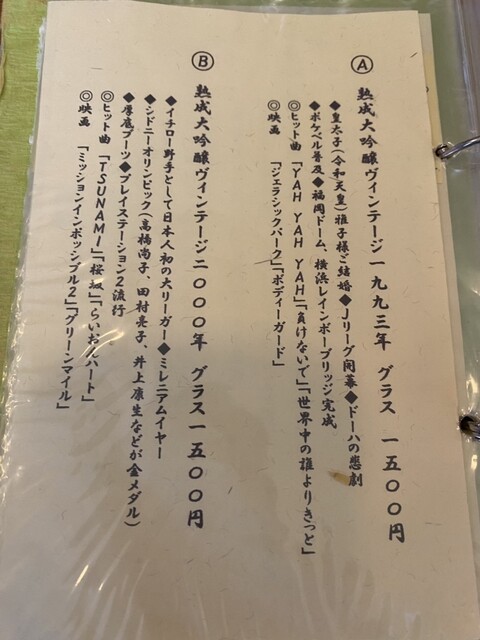 Ⓐ 熟成大吟醸ヴィンテージ一九九三年 グラス 一五〇〇円
◆皇太子(令和天皇)雅子様ご結婚◆Jリーグ開幕◆ドーハの悲劇
◆ポケベル普及◆福岡ドーム、横浜レインボーブリッジ完成
◎ヒット曲 「YAH YAH YAH」「負けないで」「世界中の誰よりきっと」
◎映画 「ジェラシックパーク」「ボディーガード」
Ⓑ 熟成大吟醸ヴィンテージ二〇〇〇年 グラス一五〇〇円
◆イチロー野手として日本人初の大リーガー◆ミレニアムイヤー
◆シドニーオリンピック(高橋尚子、田村亮子、井上康生などが金メダル)
◆厚底ブーツ◆プレイステーション2流行
◎ヒット曲 「TSUNAMI」「桜坂」「らいおんハート」
◎映画 「ミッションインポッシブル2」「グリーンマイル」